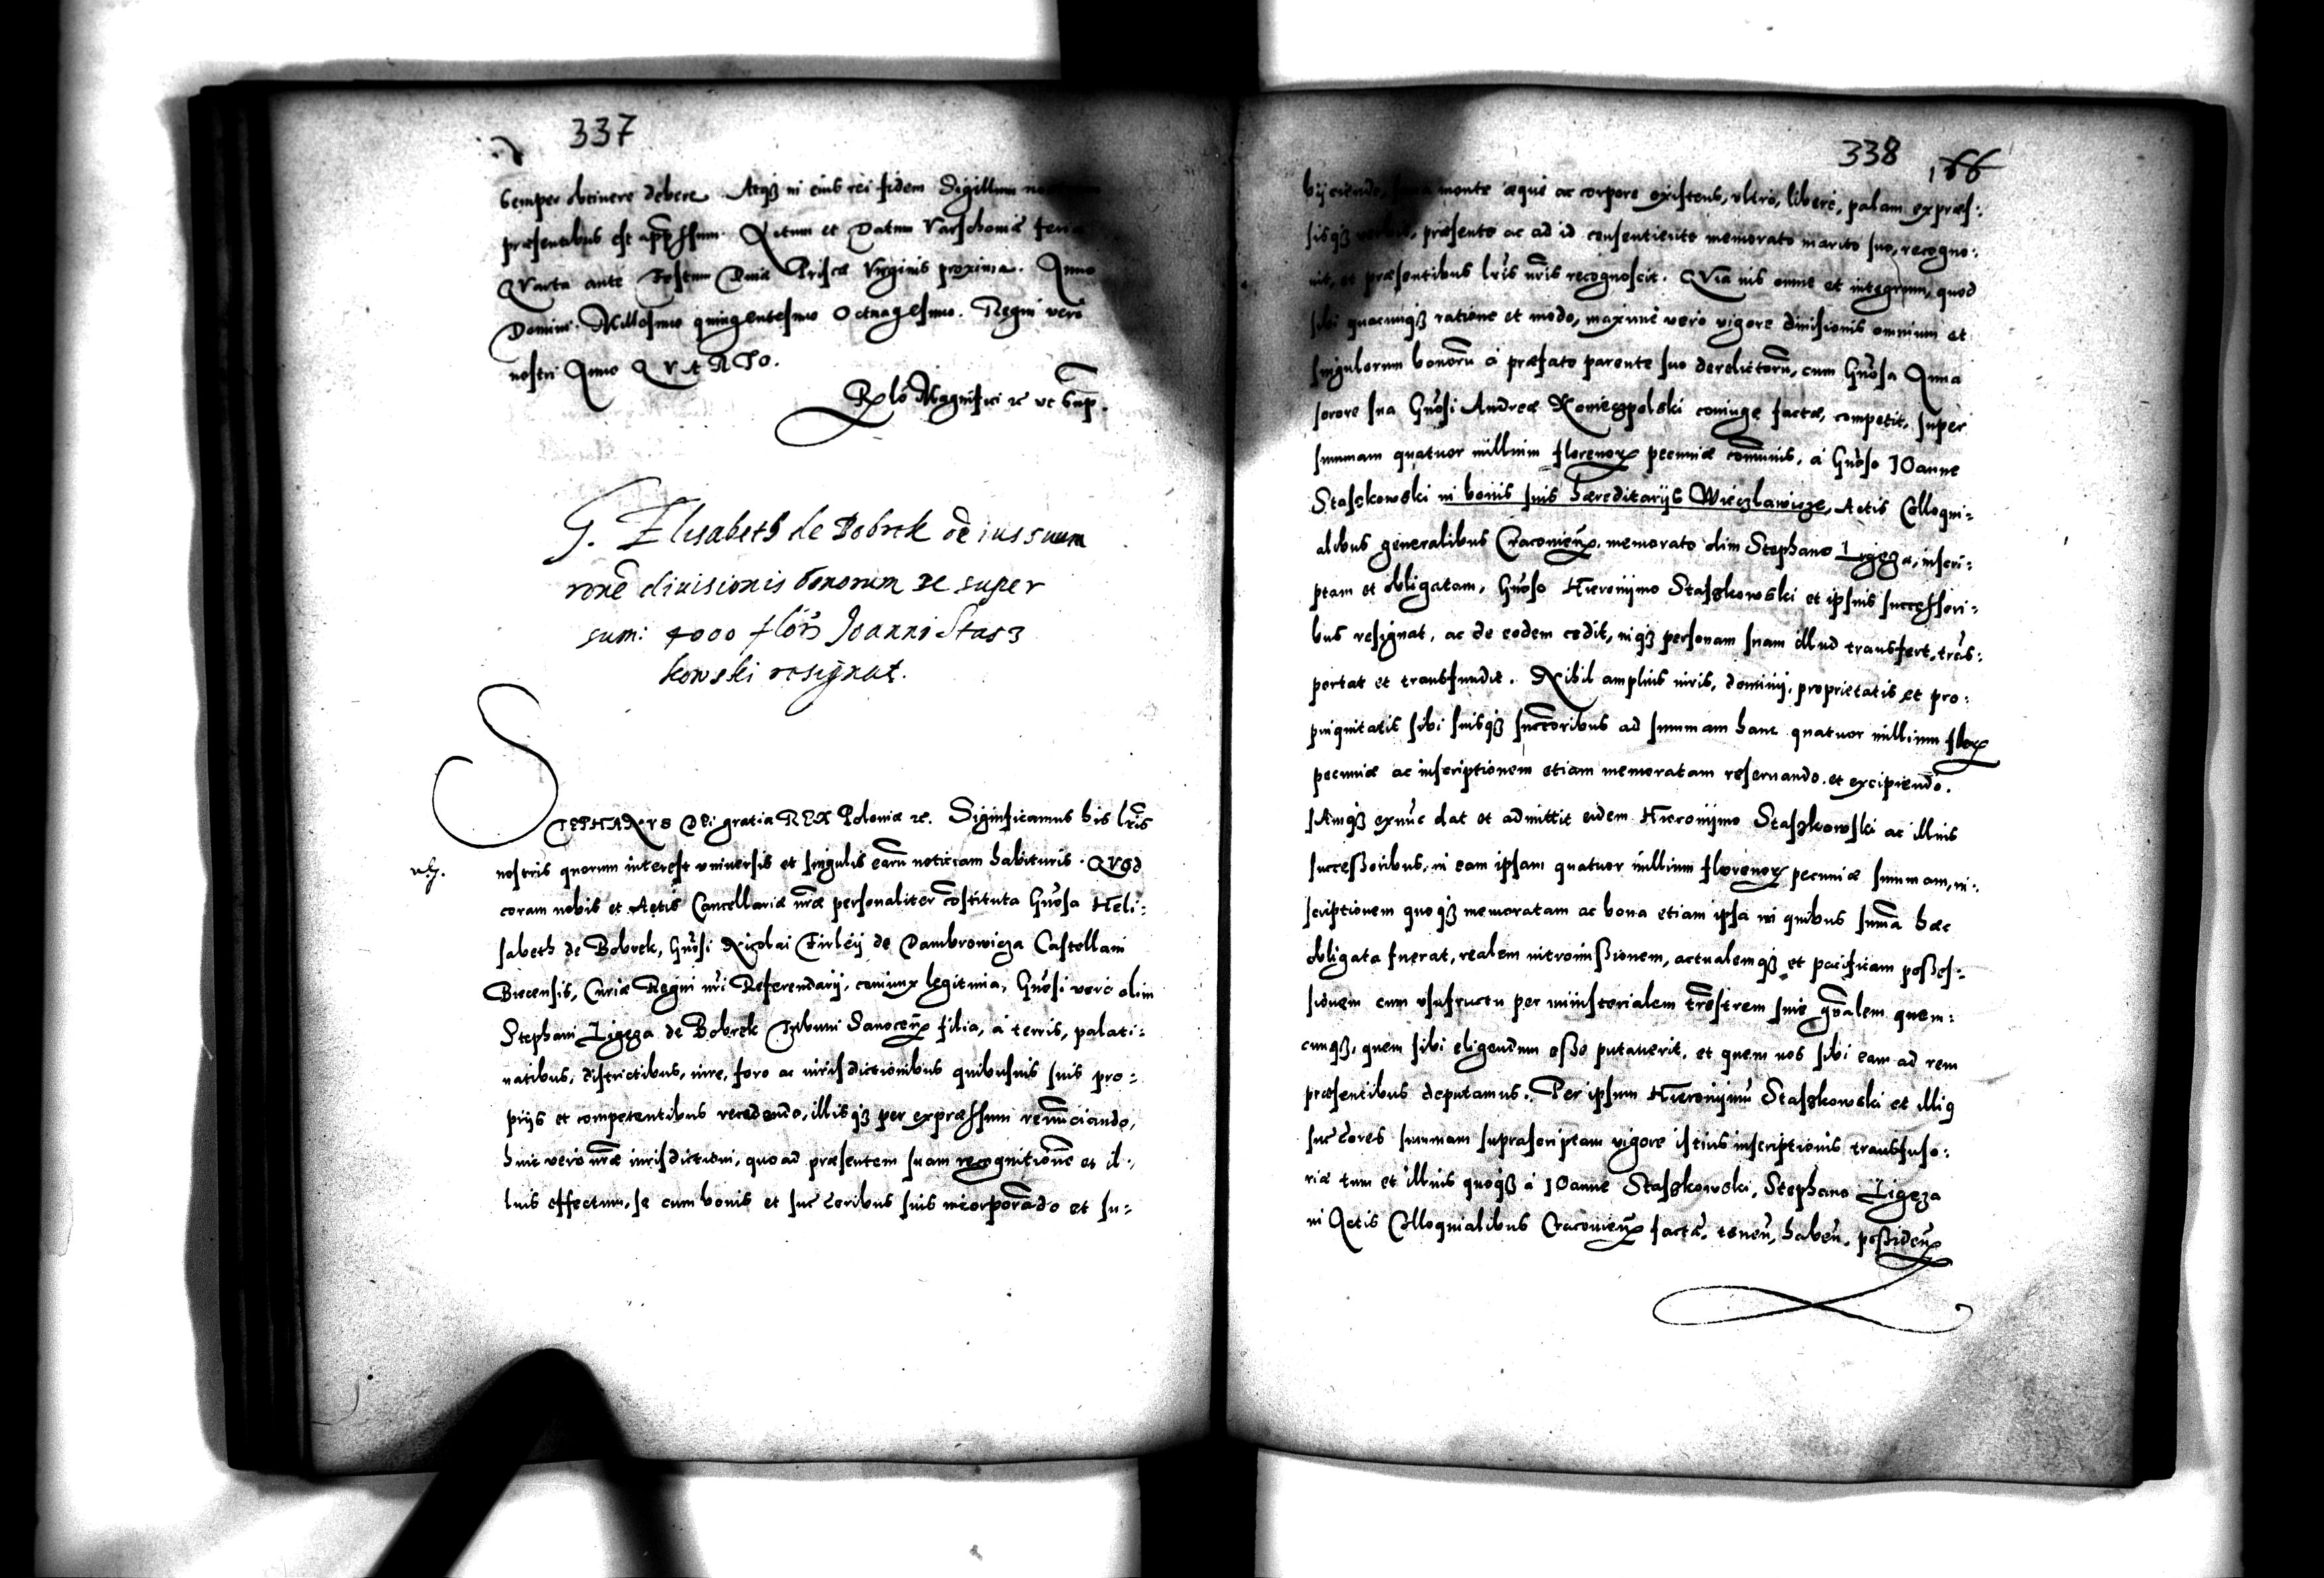 337
semper obtinere debere. Atq3 in eius rei fidem Sigillum
præsentibus est appressum. Actum et Datum Varschoviæ feria
QVarta ante Festum Divæ Priscæ Virginis proxima. Anno
Domini Millesimo quingentesimo Octuagesimo. Regni vero
nostri Anno QVARTO.
Rlō Magnifici rc ut Sup.
G. Elisabeth de Bobrek oē ius suum
rōne divisionis bonorum rc super
sum: 4000 flor̄ Joanni Stas3
kowski resignat.
STEPHANVS Dei gratia REX Poloniæ rc. Significamus his lr̄is
nostris quorum interest universis et singulis earū noticiam habituris. QVOD
coram nobis et Actis Cancellariæ nr̄æ personaliter cōstituta Gn̄osa Heli:
sabeth de Bobrek, Gn̄osi Nicolai Firleij de Dambrowicza Castellani
Biecensis, Curiæ Regni nr̄i Referendarij, coniunx legitima, Gn̄osi vero olim
Stephani Ligęza de Bobrek Tribuni Sanocen̄ filia, à terris, palati:
natibus, districtibus, iure, foro ac iurisdictionibus quibusuis suis pro:
prijs et competentibus recedendo, illisq3 per expræssum renūciando,
huic vero nr̄æ iurisdictioni, quo ad præsentem suam recognitionē et il:
lius effectum, se cum bonis et succ̄oribus suis incorporādo et su:
338
166
bijciendo, mente æque ac corpore existens, ultro, libere, palam expræs:
sisq3 verbis, præsente ac ad id consentiente memorato marito suo, recogno:
uit, et præsentibus lr̄is nr̄is recognoscit. QVia ius omne et integrum, quod
sibi quacunq3 ratione et modo, maxime vero vigore diuisionis omnium et
singulorum bonorū à præfato parente suo derelictorū, cum Gn̄osa Anna
sorore sua Gn̄osi Andreæ Konieczpolski coniuge factæ, competit, super
summam quatuor millium florenor̄ pecuniæ cōmunis, à Gn̄oso IOanne
Staszkowski in bonis suis hæreditarijs Więczławicze, Actis Colloqui:
alibus generalibus Cracovien̄, memorato olim Stephano Ligęza, inscri:
ptam et obligatam, Gn̄oso Hieronijmo Staszkowski et ipsius successori:
bus resignat, ac de eodem cedit, inq3 personam suam illud transfert, trās:
portat et transfundit. Nihil amplius iuris, dominij, proprietatis et pro:
pinquitatis sibi suisq3 succ̄oribus ad summam hanc quatuor millium flor̄
pecuniæ ac inscriptionem etiam memoratam reseruando et excipiendo.
IAmq3 exnūc dat et admittit eidem Hieronijmo Staszkowski ac illius
successoribus, in eam ipsam quatuor millium florenor̄ pecuniæ summam, in:
scriptionem quoq3 memoratam ac bona etiam ipsa in quibus sum̄a hæc
obligata fuerat, realem intromissionem, actualemq3 et pacificam posses:
sionem cum usufructu per ministerialem trēstrem siue gn̄alem quem:
cunq3, quem sibi eligendum esse putauerit, et quem nos sibi eam ad rem
præsentibus deputamus. Per ipsum Hieronijmū Staszkowski et illius
succ̄ores summam suprascriptam vigore istius inscriptionis transfuso:
riæ tum et illius quoq3 à IOanne Staszkowski, Stephano Ligęza
in Actis Colloquialibus Cracovien̄ factæ, tenen̄, haben̄, possiden̄